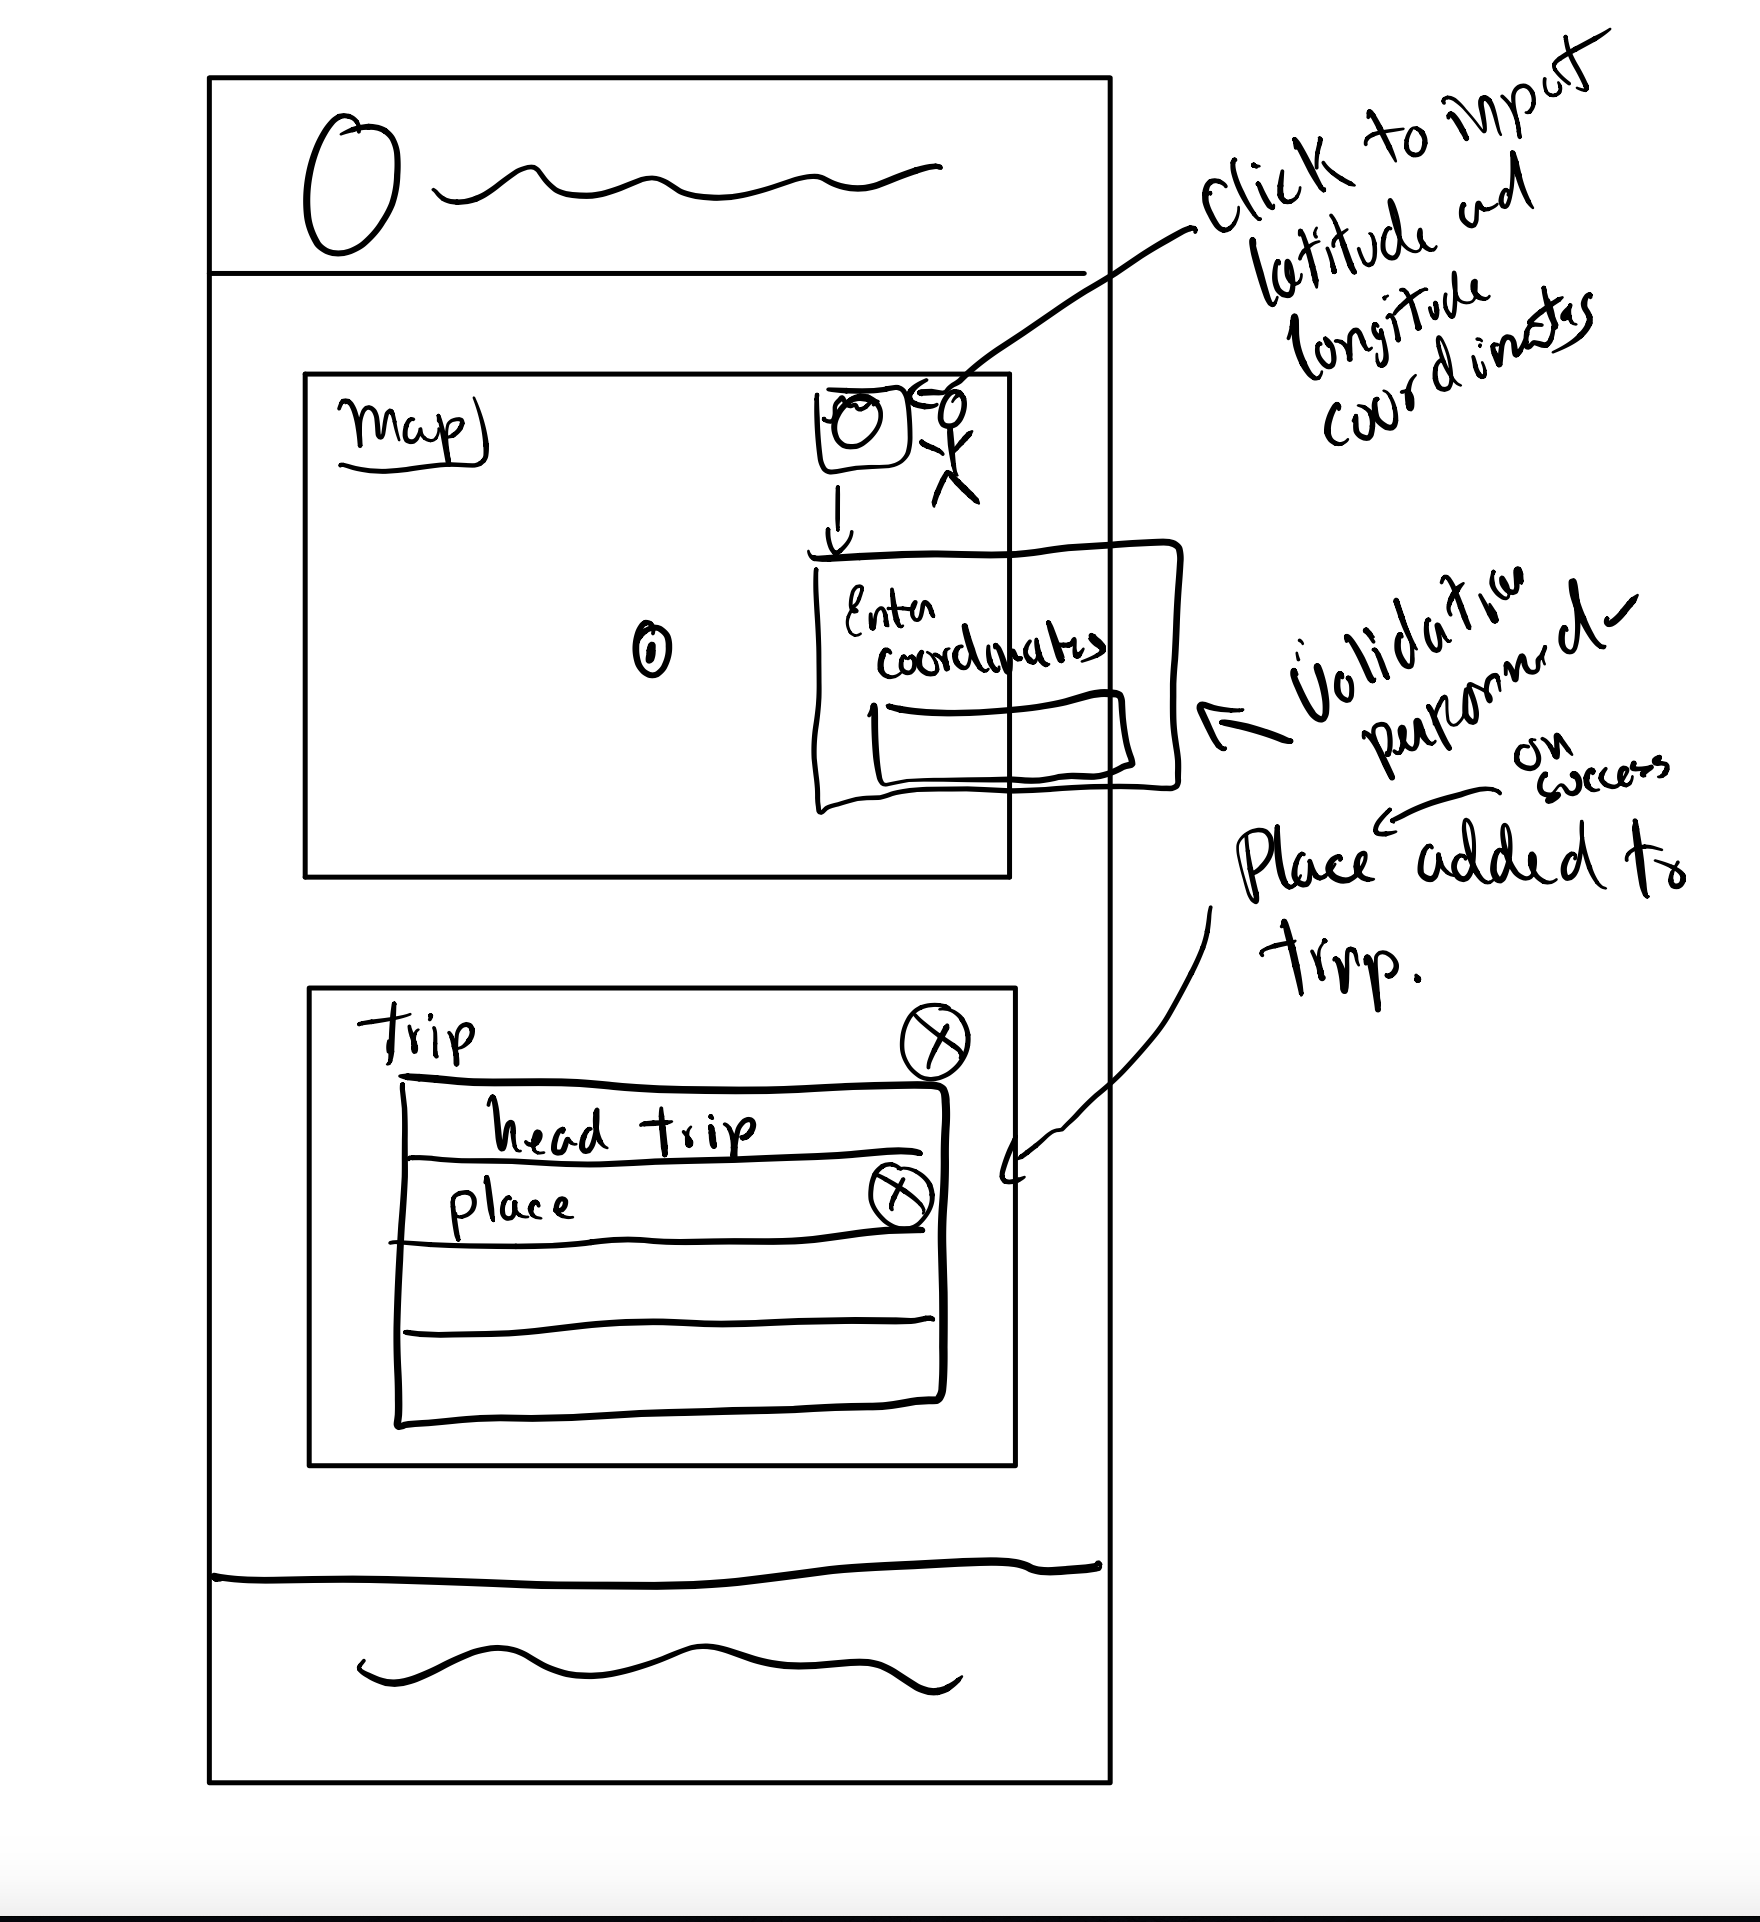 Click to input
latitude and
longitude
coordinates
Map
Enter
coordinates
Validation
performed
on
success
Place added to
trip.
trip
head trip
place